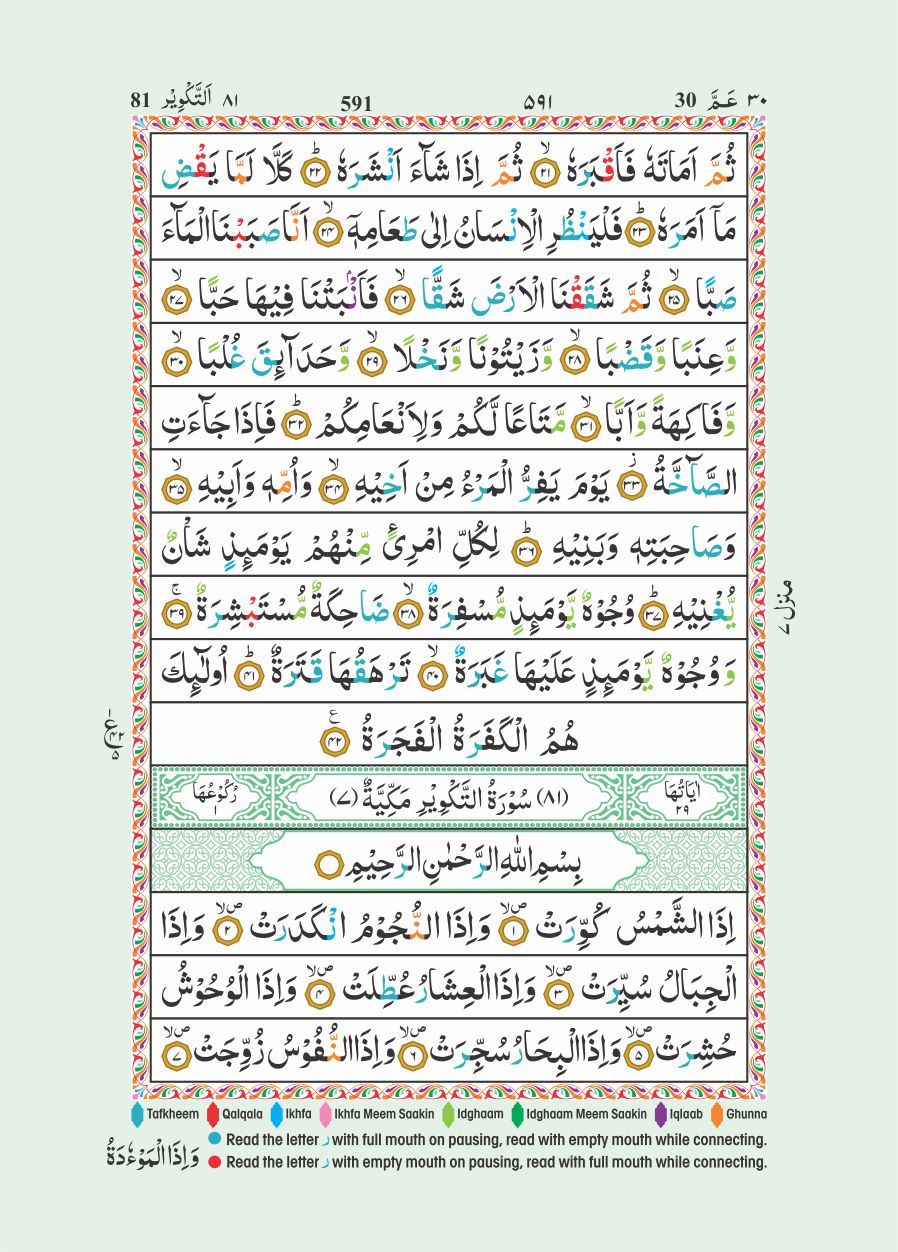 81 اَلتَّكْوِيْر ٨١ 591 ٥٩١ 30 عَمَّ ٣٠
ثُمَّ اَمَاتَهٗ فَاَقْبَرَهٗ ۙ﴿٢١﴾ ثُمَّ اِذَا شَآءَ اَنْشَرَهٗ ؕ﴿٢٢﴾ كَلَّا لَمَّا يَقْضِ
مَاۤ اَمَرَهٗ ؕ﴿٢٣﴾ فَلْيَنْظُرِ الْاِنْسَانُ اِلٰى طَعَامِهٖۤ ۙ﴿٢٤﴾ اَنَّا صَبَبْنَا الْمَآءَ
صَبًّا ۙ﴿٢٥﴾ ثُمَّ شَقَقْنَا الْاَرْضَ شَقًّا ۙ﴿٢٦﴾ فَاَنْۢبَتْنَا فِيْهَا حَبًّا ۙ﴿٢٧﴾
وَّعِنَبًا وَّقَضْبًا ۙ﴿٢٨﴾ وَّزَيْتُوْنًا وَّنَخْلًا ۙ﴿٢٩﴾ وَّحَدَآئِقَ غُلْبًا ۙ﴿٣٠﴾
وَّفَاكِهَةً وَّاَبًّا ۙ﴿٣١﴾ مَّتَاعًا لَّكُمْ وَلِاَنْعَامِكُمْ ؕ﴿٣٢﴾ فَاِذَا جَآءَتِ
الصَّآخَّةُ ؗ﴿٣٣﴾ يَوْمَ يَفِرُّ الْمَرْءُ مِنْ اَخِيْهِ ۙ﴿٣٤﴾ وَاُمِّهٖ وَاَبِيْهِ ۙ﴿٣٥﴾
وَصَاحِبَتِهٖ وَبَنِيْهِ ؕ﴿٣٦﴾ لِكُلِّ امْرِئٍ مِّنْهُمْ يَوْمَئِذٍ شَاْنٌ
يُّغْنِيْهِ ؕ﴿٣٧﴾ وُجُوْهٌ يَّوْمَئِذٍ مُّسْفِرَةٌ ۙ﴿٣٨﴾ ضَاحِكَةٌ مُّسْتَبْشِرَةٌ ۚ﴿٣٩﴾
وَوُجُوْهٌ يَّوْمَئِذٍ عَلَيْهَا غَبَرَةٌ ۙ﴿٤٠﴾ تَرْهَقُهَا قَتَرَةٌ ؕ﴿٤١﴾ اُولٰٓئِكَ
هُمُ الْكَفَرَةُ الْفَجَرَةُ ﴿٤٢﴾ ع
منزل ٧
اٰيَاتُهَا ٢٩ (٨١) سُوْرَةُ التَّكْوِيْرِ مَكِّيَّةٌ (٧) رُكُوْعُهَا ١
بِسْمِ اللّٰهِ الرَّحْمٰنِ الرَّحِيْمِ
اِذَا الشَّمْسُ كُوِّرَتْ ۪ۙ﴿١﴾ وَاِذَا النُّجُوْمُ انْكَدَرَتْ ۪ۙ﴿٢﴾ وَاِذَا
الْجِبَالُ سُيِّرَتْ ۪ۙ﴿٣﴾ وَاِذَا الْعِشَارُ عُطِّلَتْ ۪ۙ﴿٤﴾ وَاِذَا الْوُحُوْشُ
حُشِرَتْ ۪ۙ﴿٥﴾ وَاِذَا الْبِحَارُ سُجِّرَتْ ۪ۙ﴿٦﴾ وَاِذَا النُّفُوْسُ زُوِّجَتْ ۪ۙ﴿٧﴾
Tafkheem Qalqala Ikhfa Ikhfa Meem Saakin Idghaam Idghaam Meem Saakin Iqlaab Ghunna
Read the letter ر with full mouth on pausing, read with empty mouth while connecting.
Read the letter ر with empty mouth on pausing, read with full mouth while connecting.
وَاِذَا الْمَوْءٗدَةُ